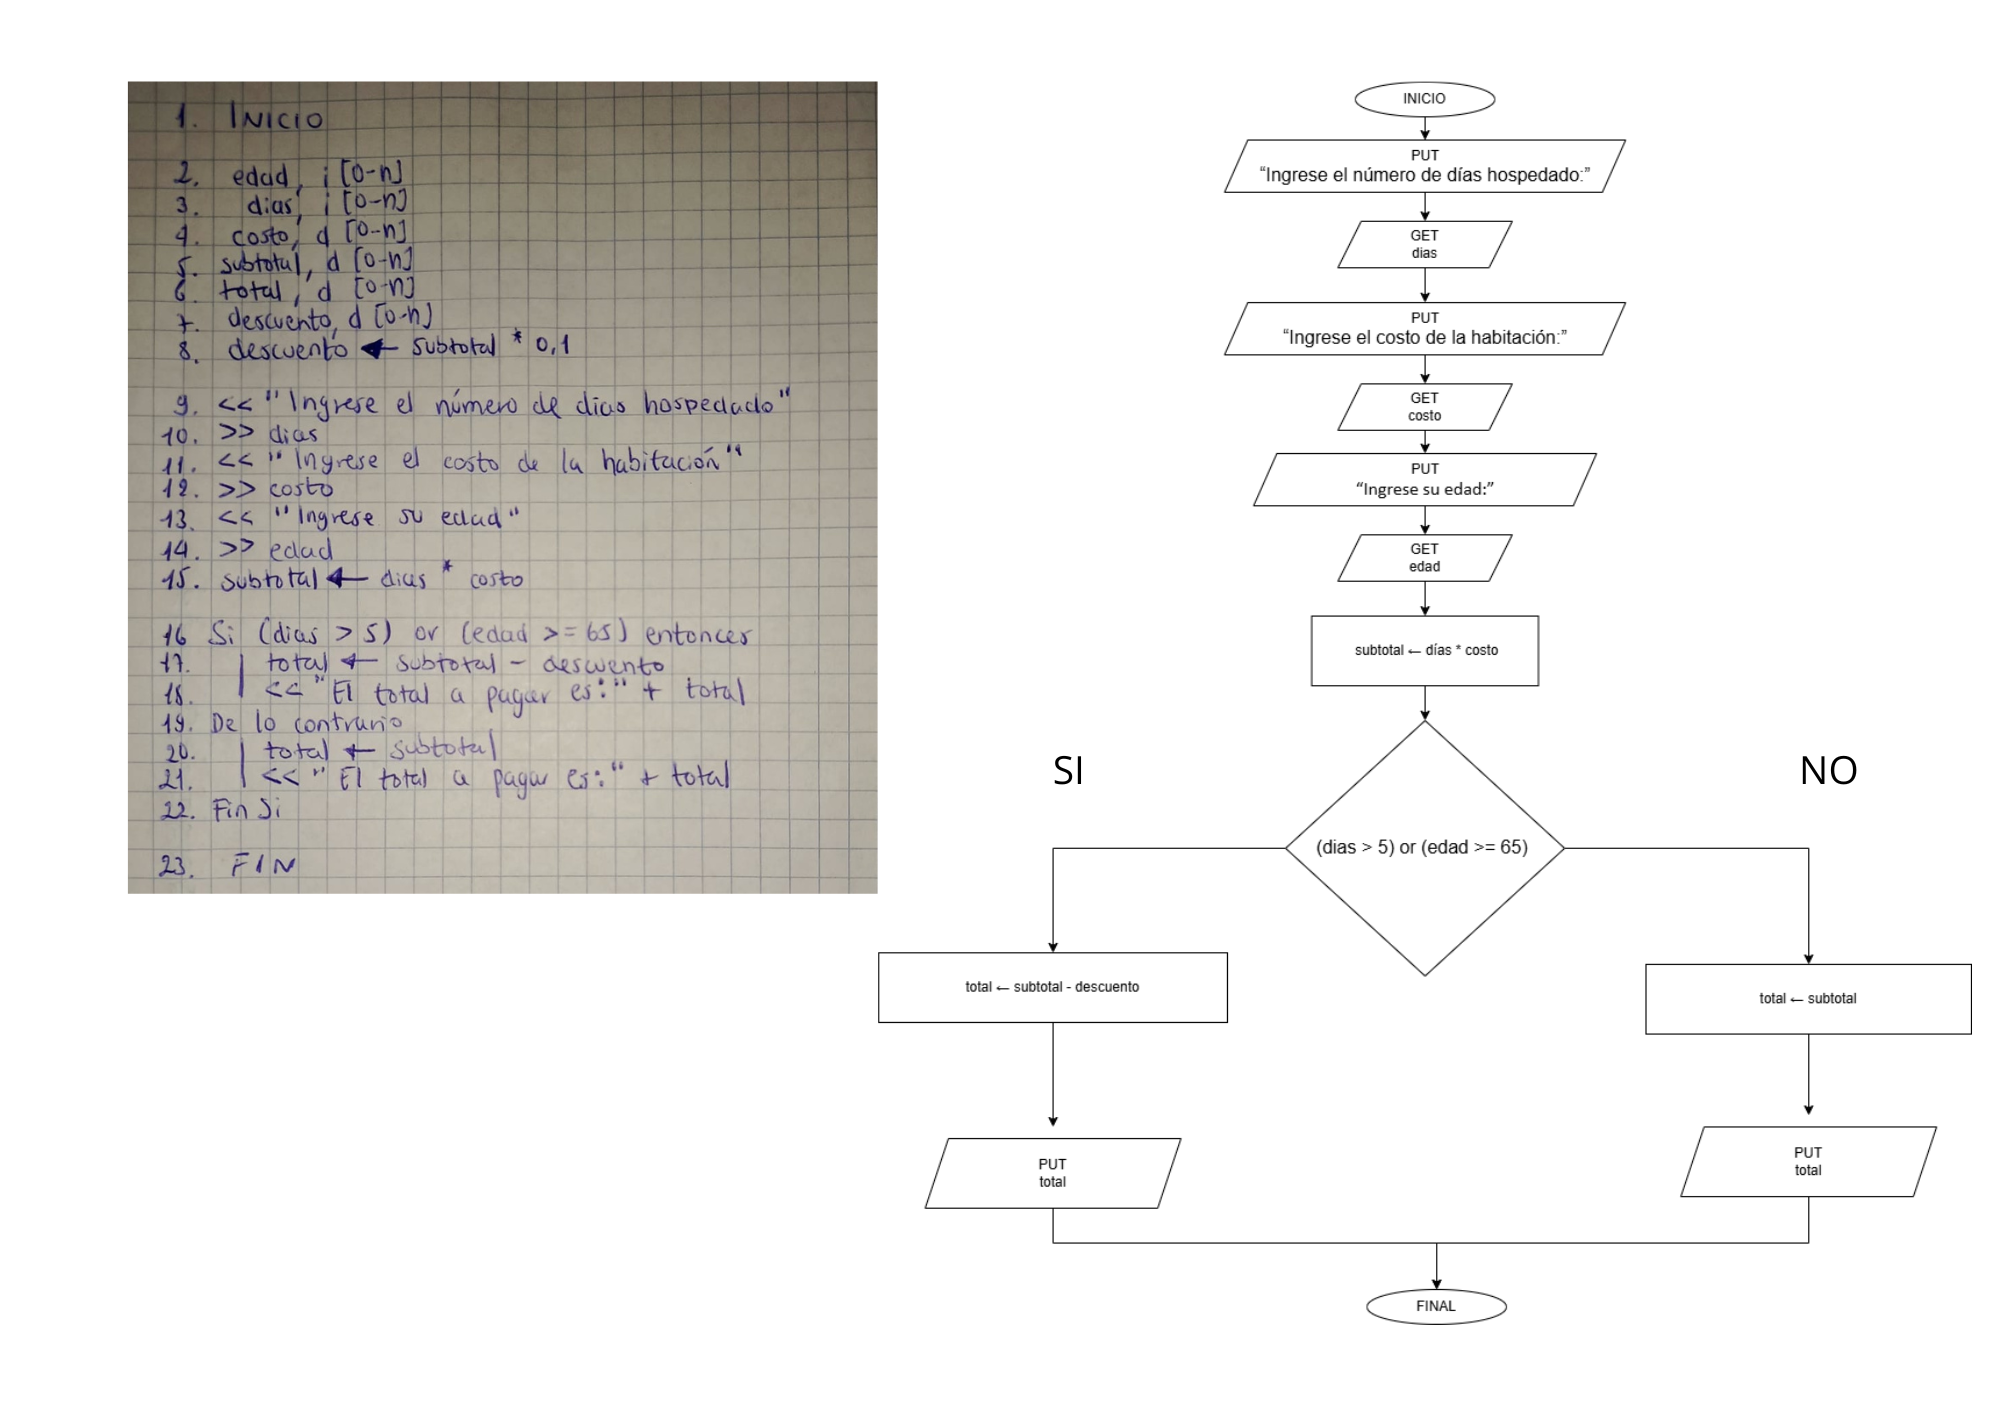 1. INICIO
2. edad, i [0-n]
3. dias, i [0-n]
4. costo, d [0-n]
5. subtotal, d [0-n]
6. total, d [0-n]
7. descuento, d [0-n]
8. descuento ← subtotal * 0,1
9. << "Ingrese el número de dias hospedado"
10. >> dias
11. << "Ingrese el costo de la habitación"
12. >> costo
13. << "Ingrese su edad"
14. >> edad
15. subtotal ← dias * costo
16 Si (dias > 5) or (edad >= 65) entonces
17. total ← subtotal - descuento
18. << "El total a pagar es:" + total
19. De lo contrario
20. total ← subtotal
21. << "El total a pagar es:" + total
22. Fin Si
23. FIN
INICIO
PUT
“Ingrese el número de días hospedado:”
GET
dias
PUT
“Ingrese el costo de la habitación:”
GET
costo
PUT
“Ingrese su edad:”
GET
edad
subtotal ← días * costo
SI
NO
(dias > 5) or (edad >= 65)
total ← subtotal - descuento
total ← subtotal
PUT
total
PUT
total
FINAL